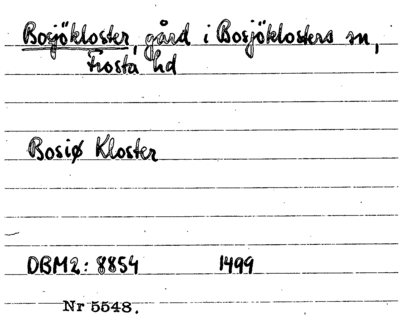 Bosjökloster, gård i Bosjöklosters sn,
Frosta hd
Bosiø Kloster
DBM2: 8854 1499
Nr 5548.